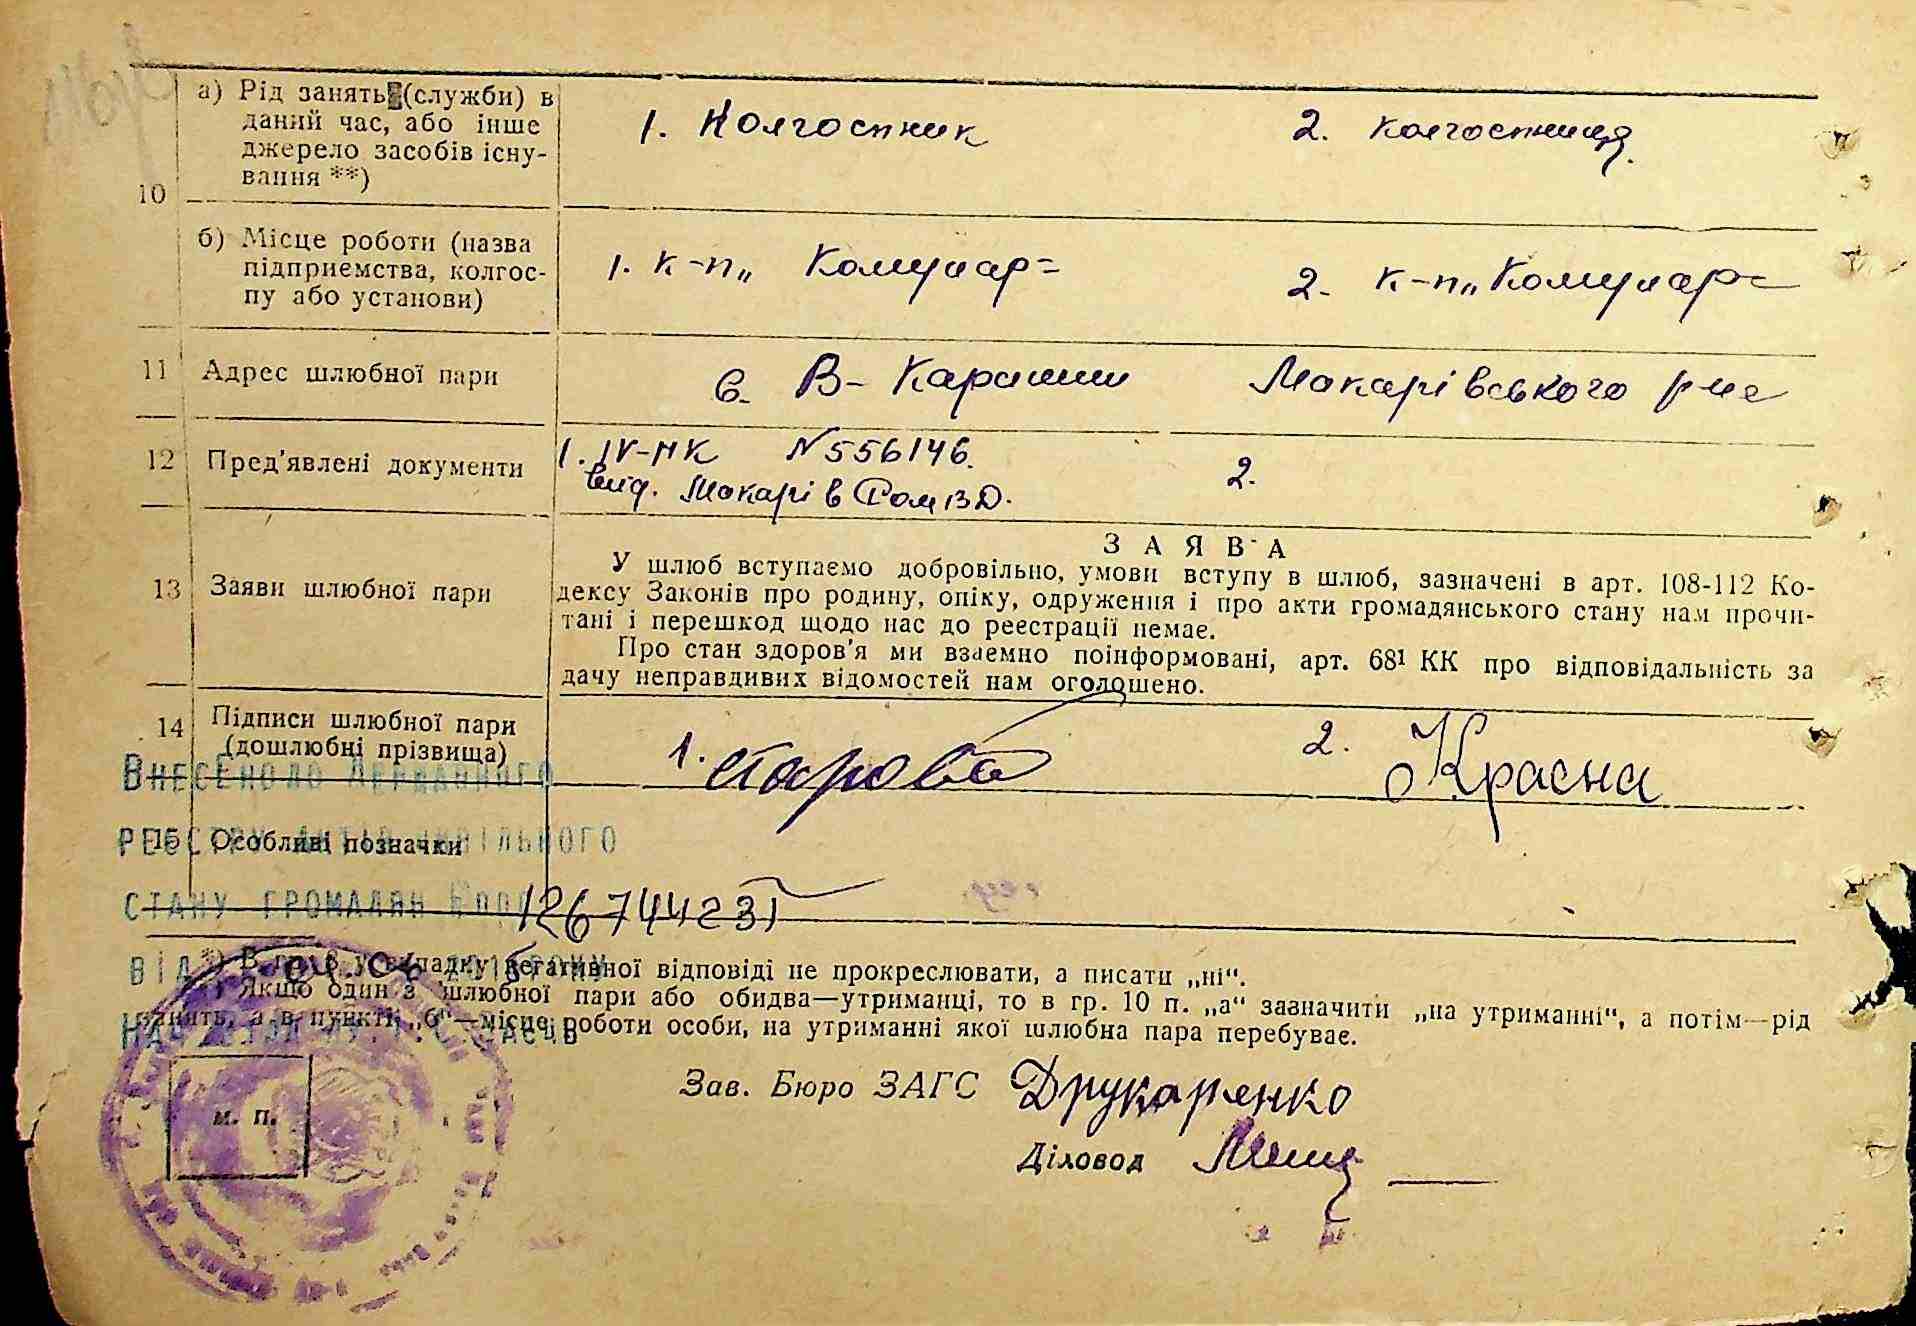 а) Рід занять (служби) в
даний час, або інше
джерело засобів існу-
вання **)
1. Колгоспник
2. колгоспниця
10
б) Місце роботи (назва
підприємства, колгос-
пу або установи)
1. к-п „ Комунар"
2. к-п „ Комунар"
11 Адрес шлюбної пари
с. В-Карашин Макарівського р-не
12 Пред'явлені документи
1. IV-НК N 556146.
вид. Макарів
2.
13 Заяви шлюбної пари
ЗАЯВА
У шлюб вступаємо добровільно, умови вступу в шлюб, зазначені в арт. 108-112 Ко-
дексу Законів про родину, опіку, одруження і про акти громадянського стану нам прочи-
тані і перешкод щодо нас до реєстрації немає.
Про стан здоров'я ми взаємно поінформовані, арт. 68¹ КК про відповідальність за
дачу неправдивих відомостей нам оголошено.
14 Підписи шлюбної пари
(дошлюбні прізвища)
1.
2. Красна
ВНЕСЕНО ДО ДЕРЖАВНОГО
РЕЄСТРУ АКТІВ ЦИВІЛЬНОГО
15 Особливі позначки
СТАНУ ГРОМАДЯН
ВІД РОКУ
*) В гр. 8 у випадку негативної відповіді не прокреслювати, а писати „ні".
Якщо один з шлюбної пари або обидва—утриманці, то в гр. 10 п. „а" зазначити „на утриманні", а потім—рід
занять, а в пункті „б"—місце роботи особи, на утриманні якої шлюбна пара перебуває.
Зав. Бюро ЗАГС Друкаренко
м. п.
Діловод